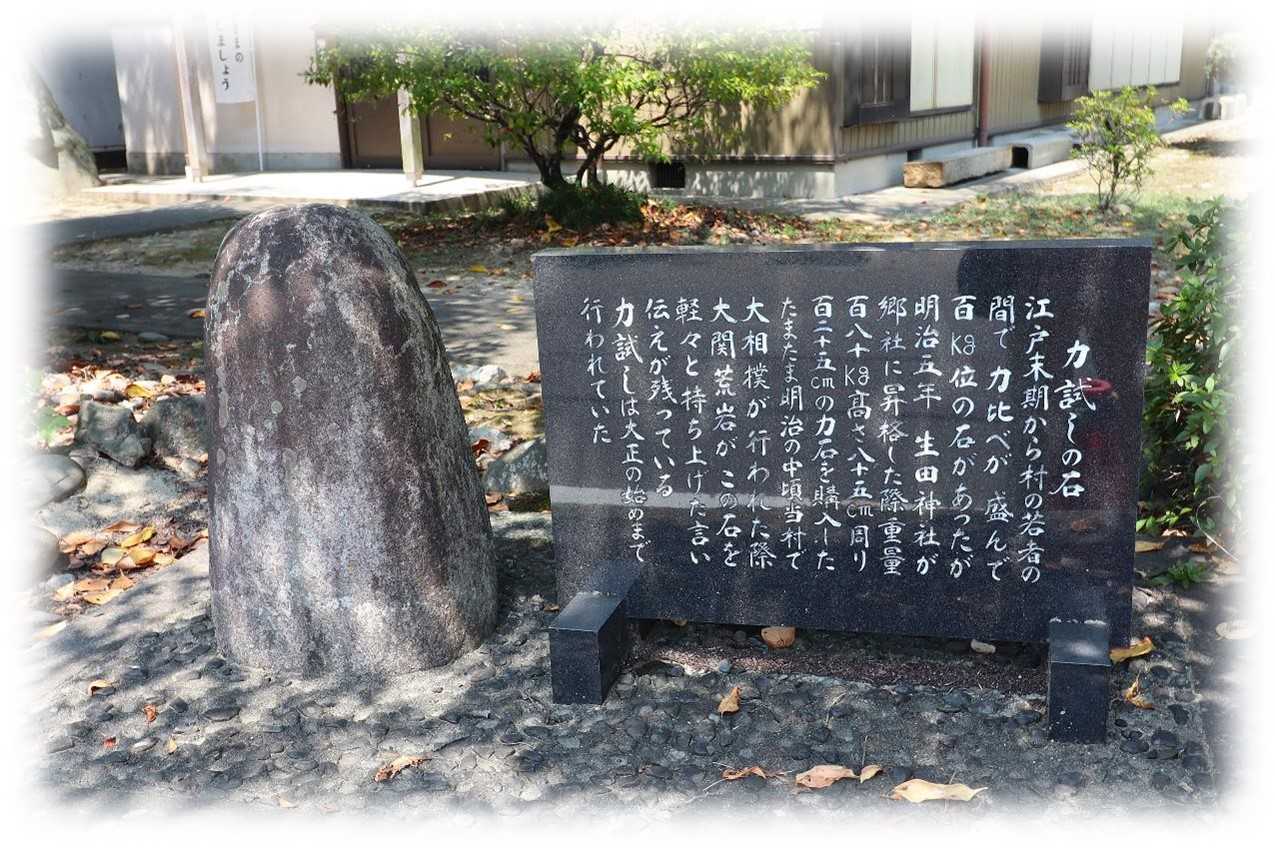 力試しの石
江戸末期から村の若者の
間で 力比べが 盛んで
百kg位の石があったが
明治五年 生田神社が
郷社に昇格した際重量
百八十kg高さ八十五cm周り
百二十五cmの力石を購入した
たまたま明治の中頃当村で
大相撲が行われた際
大関荒岩が この石を
軽々と持ち上げた言い
伝えが残っている
力試しは大正の始めまで
行われていた
まの
ましょう